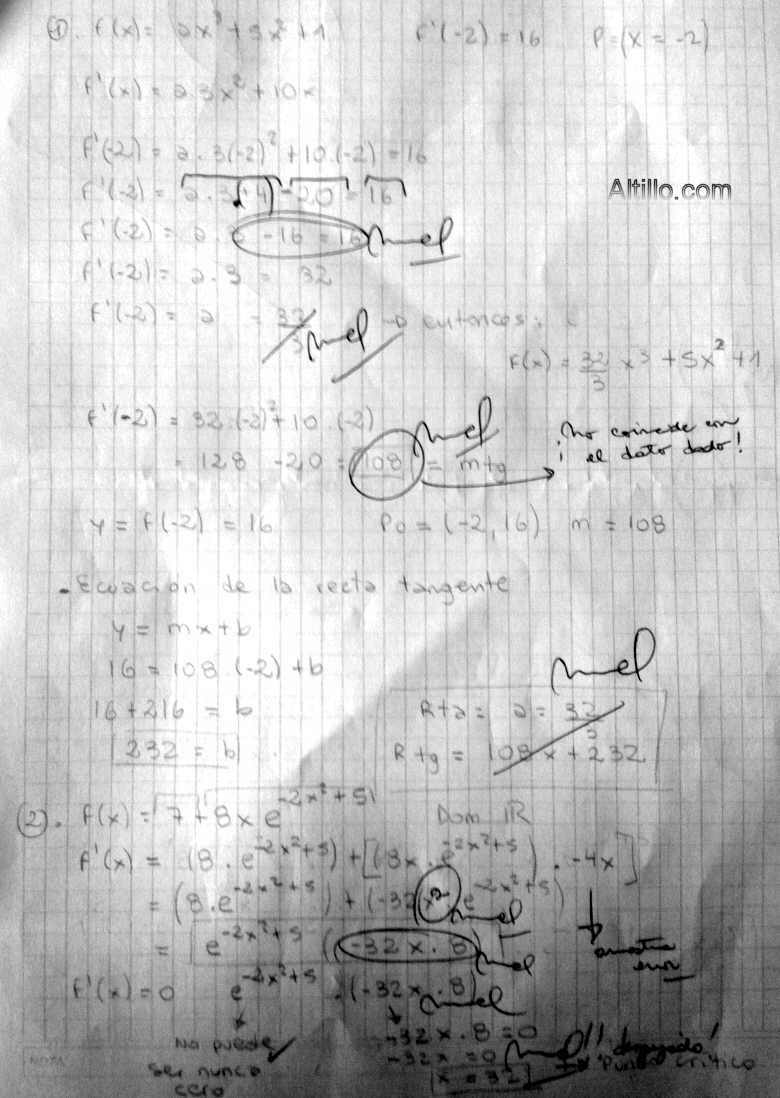 1. f(x) = ax³ + 5x² + 1 f'(-2) = 16 P=(x = -2)
f'(x) = a.3x² + 10x
f'(-2) = a.3(-2)² + 10.(-2) = 16
f'(-2) = a.3(+4) -20 = 16
Altillo.com
f'(-2) = a.3 -16 = 16 mal
f'(-2) = a.3 = 32
f'(-2) = a = 32/3 mal → entonces:
f(x) = 32/3 x³ + 5x² + 1
f'(-2) = 32.(-2)² + 10.(-2) mal
= 128 - 20 = 108 = mtg
¡no coincide con
el dato dado!
y = f(-2) = 16 Po = (-2, 16) m = 108
Ecuación de la recta tangente
y = mx+b
16 = 108.(-2) + b
16 + 216 = b
232 = b
mal
Rta = a = 32/3
Rtg = 108x + 232
2. f(x) = 7 + 8x e^(-2x²+5) Dom IR
f'(x) = (8.e^(-2x²+5)) + [(8x.e^(-2x²+5)).-4x]
= (8.e^(-2x²+5)) + (-32x² e^(-2x²+5)) mal
= e^(-2x²+5) (-32x.8) mal
arrastra
error
f'(x) = 0 e^(-2x²+5) . (-32x.8) mal
No puede
ser nunca
cero
-32x.8 = 0
-32x = 0 mal
x = 32
Punto crítico